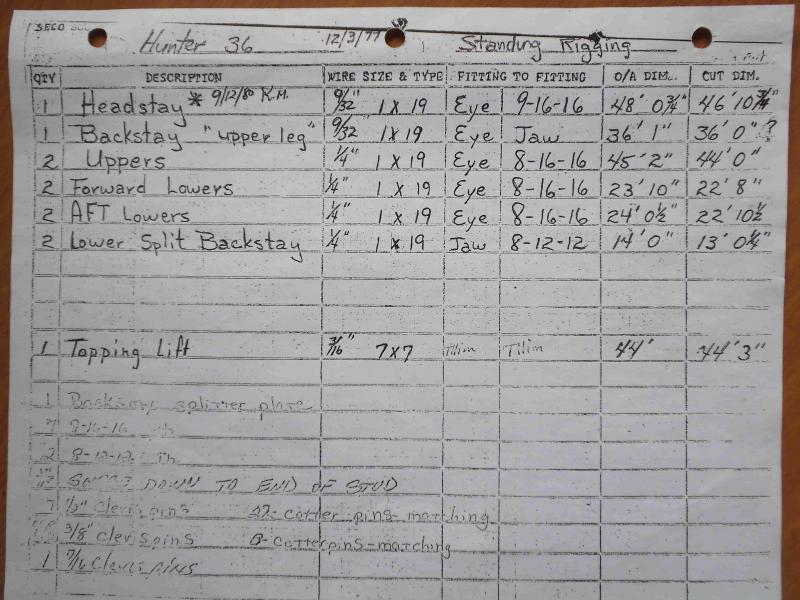 SECO
Hunter 36 12/3/77 Standing Rigging
QTY DESCRIPTION WIRE SIZE & TYPE FITTING TO FITTING O/A DIM. CUT DIM.
1 Headstay * 9/12/80 R.M. 9/32" 1 X 19 Eye 9-16-16 48' 0¾" 46' 10¾"
1 Backstay "upper leg" 9/32" 1X19 Eye Jaw 36' 1" 36' 0" ?
2 Uppers ¼" 1 X 19 Eye 8-16-16 45' 2" 44' 0"
2 Forward Lowers ¼" 1 X 19 Eye 8-16-16 23' 10" 22' 8"
2 AFT Lowers ¼" 1 X 19 Eye 8-16-16 24' 0½" 22' 10½
2 Lower Split Backstay ¼" 1 X 19 Jaw 8-12-12 14' 0" 13' 0¼"
1 Topping Lift 3/16" 7X7 44' 44' 3"
1 Backstay splitter plate
7 8-16-16
2 8-12-12
DOWN TO END OF STUD
7 ½" Clevis pins 22- cotter pins-matching
3/8" Clevis pins cotterpins-matching
1 7/16 Clevis PINS